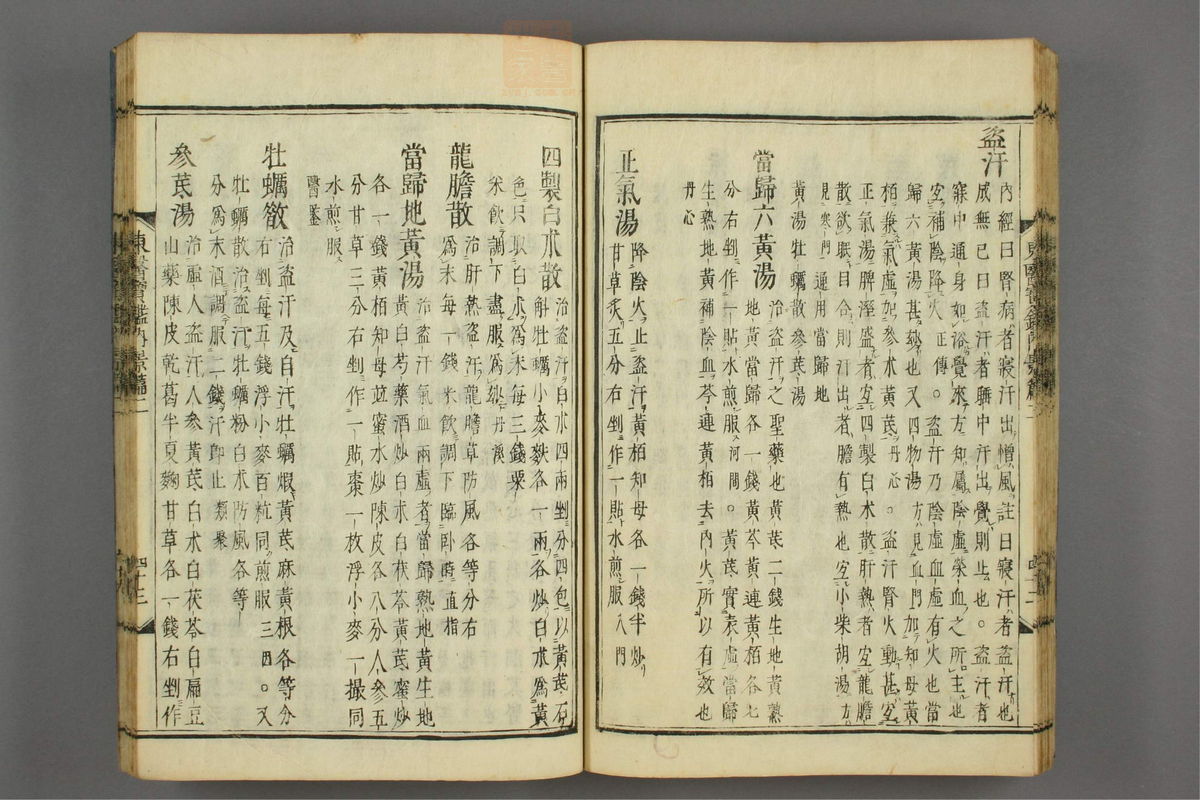 盜汗
內經曰腎病者寢汗出憎風註曰寢汗者盜汗也
成無已曰盜汗者睡中汗出覺則止也○盜汗者
寐中通身如浴覺來方知屬陰虛榮血之所主也
宜補陰降火正傳○盜汗乃陰虛血虛有火也當
歸六黃湯甚妙也又四物湯方見血門加知母黃
栢兼氣虛加參朮黃芪丹心○盜汗腎火動甚宜
正氣湯脾溼盛者宜四製白朮散肝熱者宜龍膽
散欲眠目合則汗出者膽有熱也宜小柴胡湯方
見寒門通用當歸地
黃湯牡蠣散參芪湯
當歸六黃湯 治盜汗之聖藥也黃芪二錢生地黃熟
地黃當歸各一錢黃芩黃連黃栢各七
分右剉作一貼水煎服河間○黃芪實表虛當歸
生熟地黃補陰血芩連黃栢去內火所以有效也
丹心
正氣湯 降陰火止盜汗黃栢知母各一錢半炒
甘草炙五分右剉作一貼水煎服入門
四製白朮散 治盜汗白朮四兩剉分四包以黃芪石
斛牡蠣小麥麩各一兩各炒白朮爲黃
色只取白朮爲末每三錢粟
米飮調下盡服爲妙丹溪
龍膽散 治肝熱盜汗龍膽草防風各等分右
爲末每一錢米飮調下臨臥時直指
當歸地黃湯 治盜汗氣血兩虛者當歸熟地黃生地
黃白芍藥酒炒白朮白茯苓黃芪蜜炒
各一錢黃栢知母竝蜜水炒陳皮各八分人參五
分甘草三分右剉作一貼棗一枚浮小麥一撮同
水煎服
醫鑒
牡蠣散 治盜汗及自汗牡蠣煆黃芪麻黃根各等分
右剉每五錢浮小麥百粒同煎服三因○又
牡蠣散治盜汗牡蠣粉白朮防風各等
分爲末酒調服二錢汗卽止類聚
參芪湯 治虛人盜汗人參黃芪白朮白茯苓白扁豆
山藥陳皮乾葛半夏麴甘草各一錢右剉作
東醫寶鑑內景篇二
四十二
東醫寶鑑內景篇二